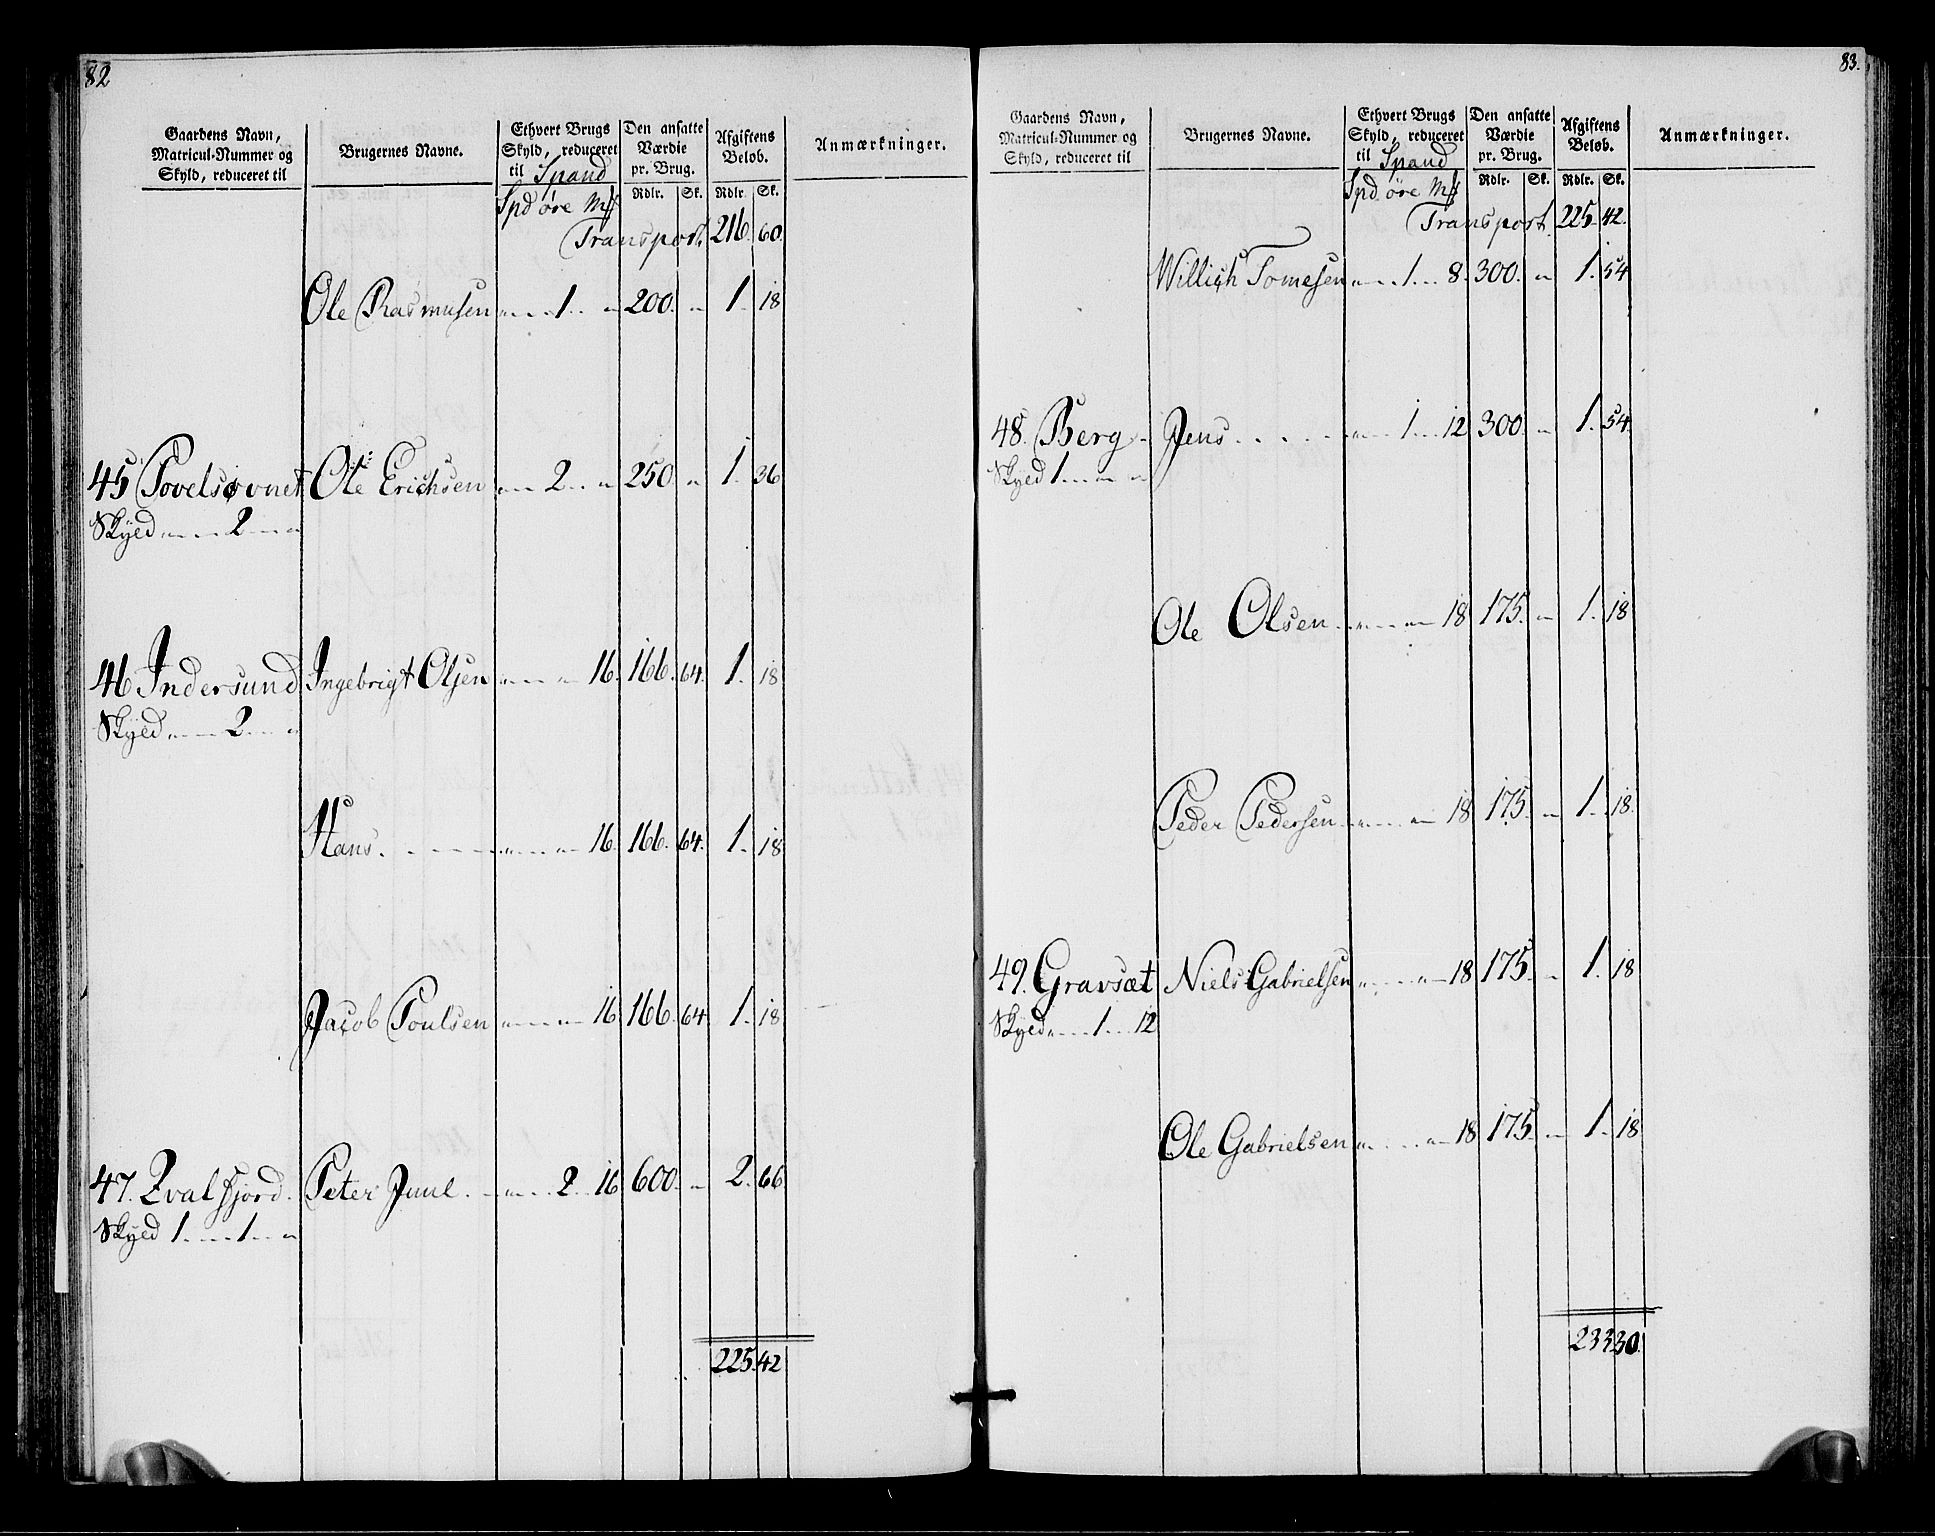 82
Gaardens Navn, Matricul-Nummer og Skyld, reduceret til
Brugernes Navne.
Ethvert Brugs Skyld, reduceret til Spand
Den ansatte Værdie pr. Brug.
Afgiftens Beløb.
Anmærkninger.
Spd øre Mk
Rdlr. Sk. Rdlr. Sk.
Transport. 216. 60.
Ole Rasmusen „ 1. „ 200. „ 1. 18
45 Povelsøvnet Ole Erichsen „ 2. „ 250. „ 1. 36
Skyld „ 2. „
46 Indersund Ingebrigt Olsen „ „ 16. 166. 64. 1. 18
Skyld „ 2. „
Hans. „ „ 16. 166. 64. 1. 18
Jacob Poulsen „ „ 16. 166. 64. 1. 18
47. Qvalfjord. Peter Juul. „ 2. 16 600. „ 2. 66
Skyld 1. 1. „
225. 42
83.
Gaardens Navn, Matricul-Nummer og Skyld, reduceret til
Brugernes Navne.
Ethvert Brugs Skyld, reduceret til Spand
Den ansatte Værdie pr. Brug.
Afgiftens Beløb.
Anmærkninger.
Spd øre Mk
Rdlr. Sk. Rdlr. Sk.
Transport. 225. 42.
Willich Tomesen „ 1. 8. 300. „ 1. 54
48. Berg Jens „ 1. 12 300. „ 1. 54.
Skyld 1. „ „
Ole Olsen „ „ 18 175. „ 1. 18
Peder Pedersen „ „ 18 175. „ 1. 18.
49. Gravsæt Niels Gabrielsen „ „ 18 175. „ 1. 18
Skyld „ 1. 12
Ole Gabrielsen „ „ 18 175. „ 1. 18
233. 30.